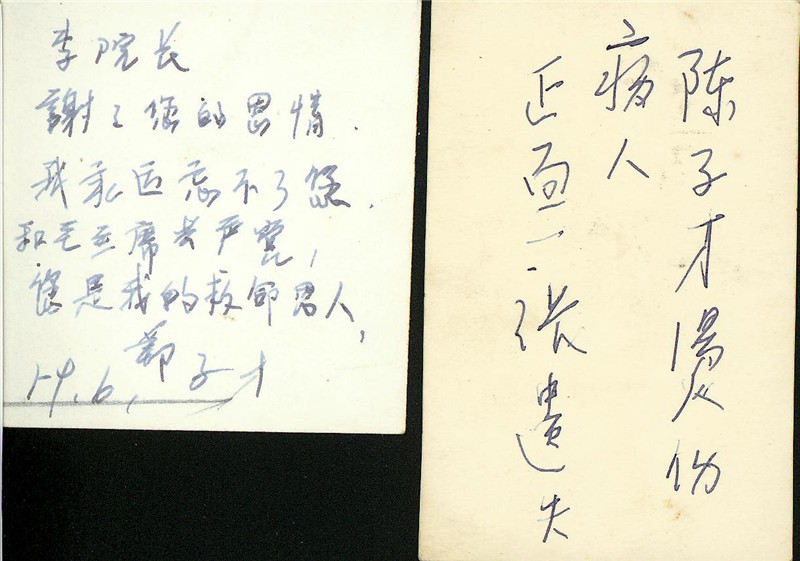 李院长
謝々您的恩情.
我永远忘不了您.
和毛主席共产党,
您是我的救命恩人,
鄭子才
陈子才燙伤
病人
正面一张遺失